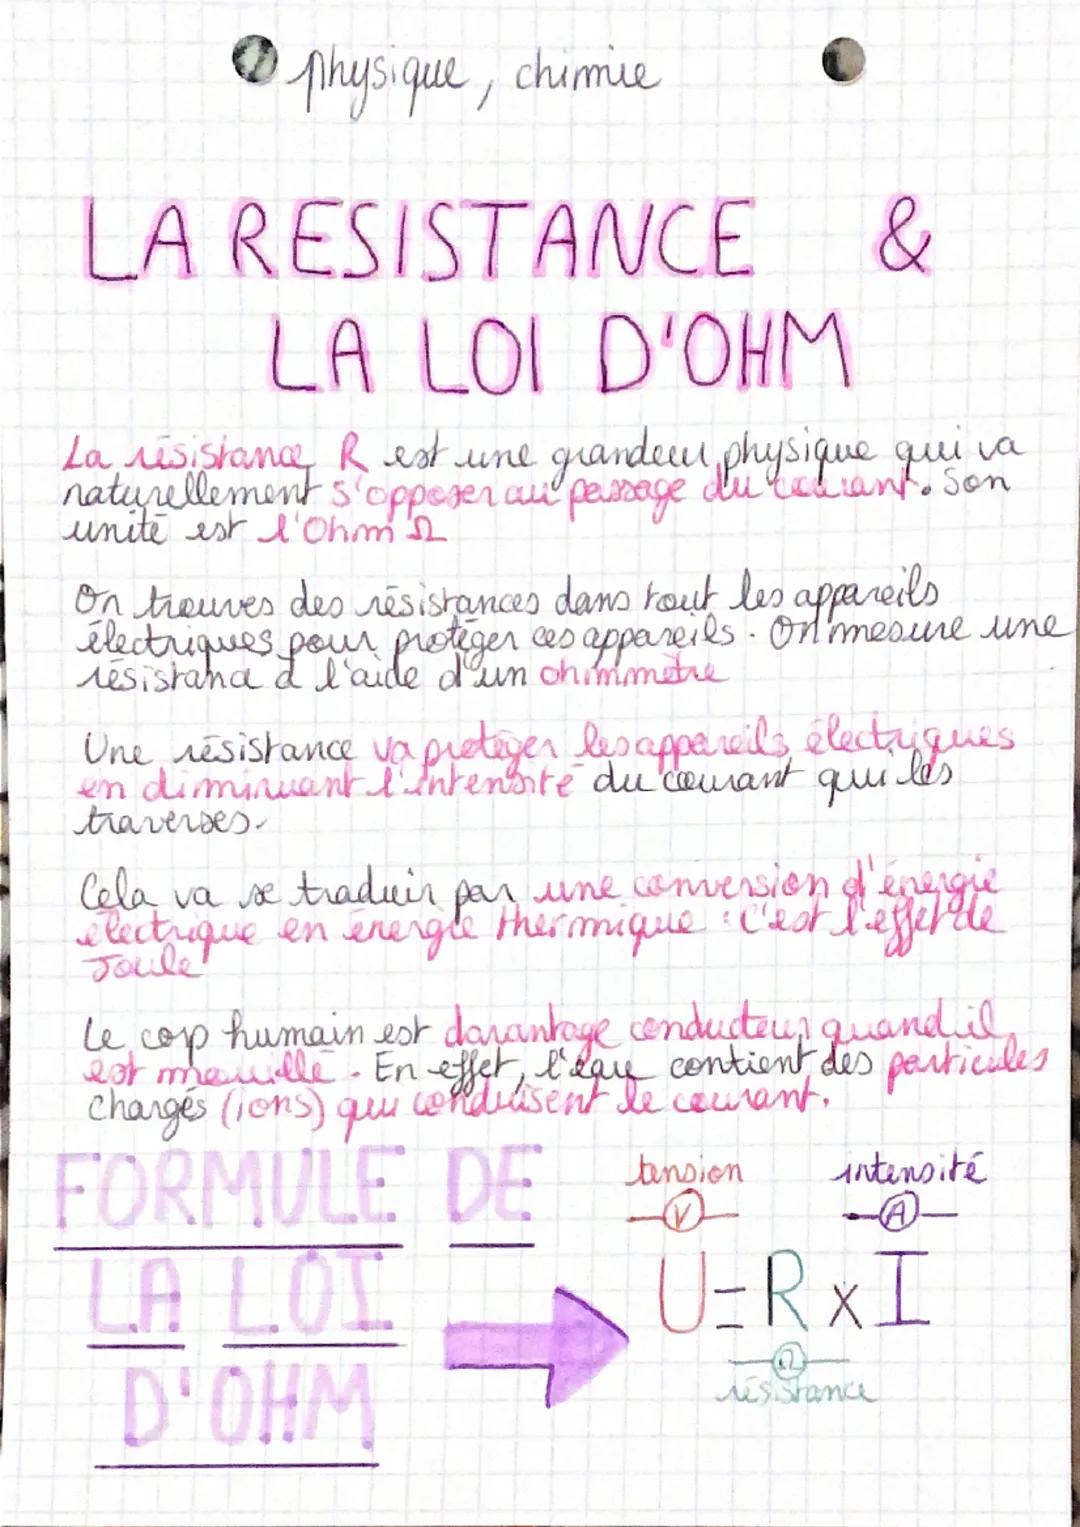 physique, chimie
LA RESISTANCE &
LA LOI D'OHM
La résistance R est une grandeur physique qui va
naturellement s'opposer au passage du courant. Son
unité est l'Ohm Ω
On trouves des résistances dans tout les appareils
électriques pour protéger ces appareils. On mesure une
résistance à l'aide d'un ohmmètre
Une résistance va protéger les appareils électriques
en diminuant l'intensité du courant qui les
traverses.
Cela va se traduir par une conversion d'énergie
électrique en énergie thermique : C'est l'effet de
Joule
Le corp humain est davantage conducteur quand il
est mouillé. En effet, l'eau contient des particules
chargés (ions) qui conduisent le courant.
FORMULE DE
LA LOI
D'OHM
tension intensité
V A
U=R x I
Ω
résistance